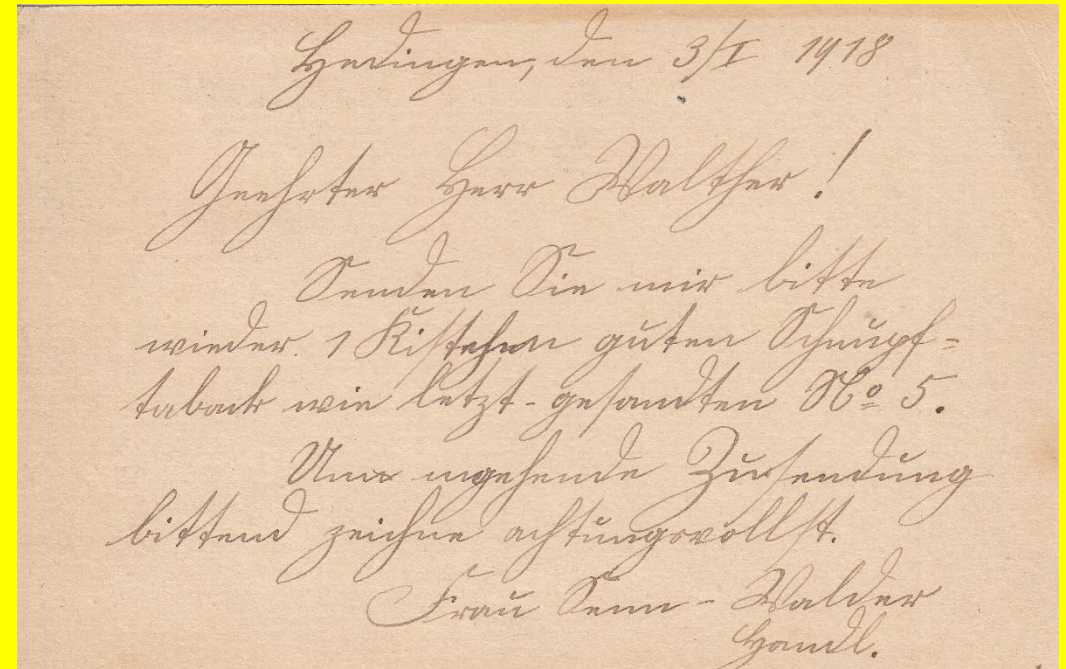 Hedingen, den 3/I 1918
Geehrter Herr Walther!
Senden Sie mir bitte
wieder 1 Kistchen guten Schnupf=
taback wie letzt-gesandten № 5.
Um umgehende Zusendung
bittend zeichne achtungsvollst.
Frau Senn-Walder
Handl.